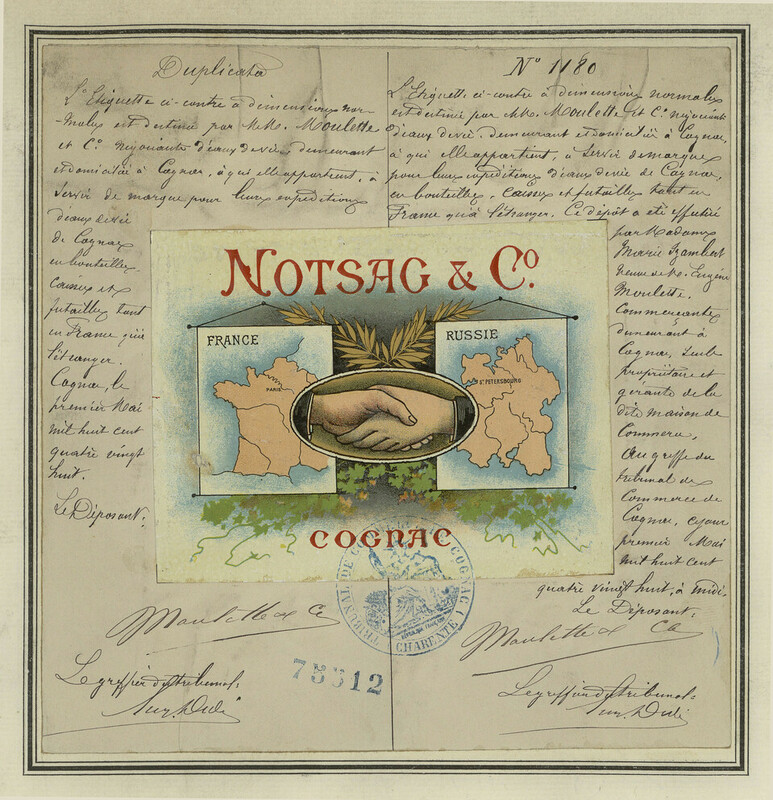 Duplicata
L'Etiquette ci-contre à dimensions nor-
-males est destinée par MM. Moulette
et Cº. négociants d'eaux de vie, demeurant
et domiciliés à Cognac, à qui elle appartient, à
servir de marque pour leurs expéditions
d'eaux de vie
de Cognac
en bouteilles
caisses et
futailles tant
en France qu'à
l'étranger.
Cognac, le
premier Mai
mil huit cent
quatre vingt
huit.
Le Déposant:
Moulette & Ce
Le greffier du tribunal:
Nº 1180
L'Etiquette ci-contre à dimensions normales
est destinée par MM. Moulette et Cº. négociants
d'eaux de vie, demeurant et domiciliés à Cognac,
à qui elle appartient, à servir de marque
pour leurs expéditions d'eaux de vie de Cognac,
en bouteilles, caisses et futailles tant en
France qu'à l'étranger. Ce dépôt a été effectué
par Madame
Marie Izambert
veuve de M. Eugène
Moulette.
Commerçante
demeurant à
Cognac, seule
propriétaire et
gérante de la
dite maison de
Commerce,
Au greffe du
tribunal de
Commerce de
Cognac, ce jour
premier Mai
mil huit cent
quatre vingt huit, à midi.
Le Déposant:
Moulette & Ce
Le greffier du tribunal:
NOTSAG & Cº.
FRANCE
PARIS
RUSSIE
ST PETERSBOURG
COGNAC
TRIBUNAL DE COMMERCE DE COGNAC
CHARENTE
75312